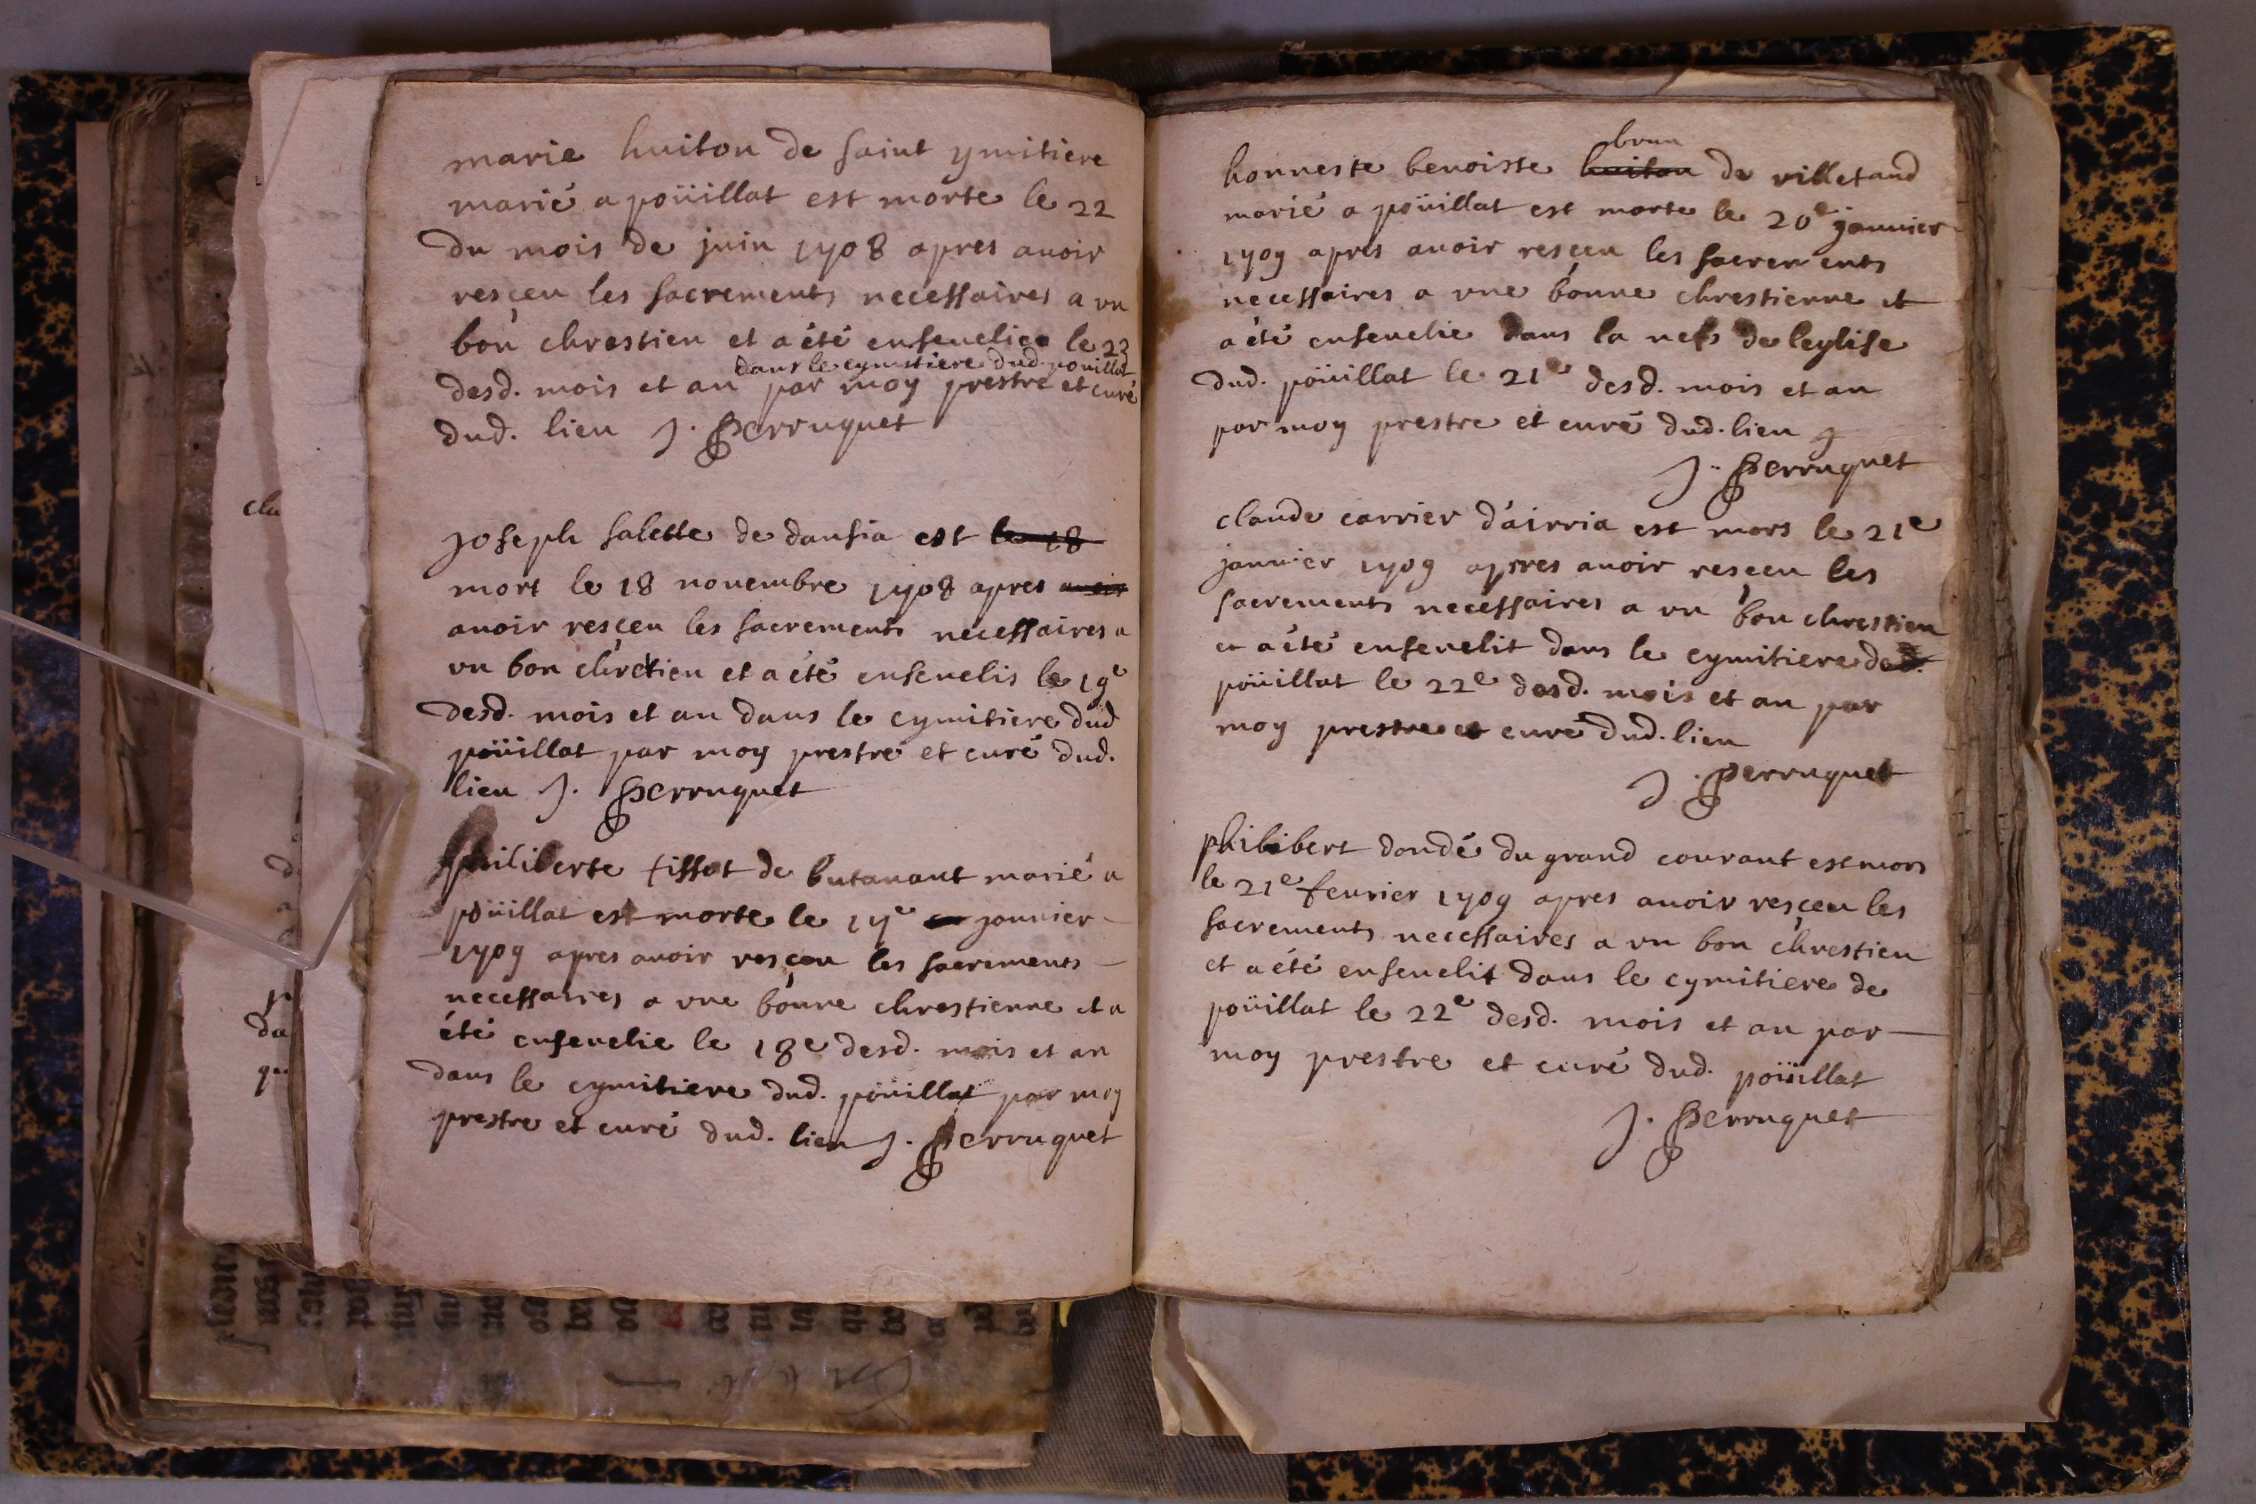 marie huiton de saint ymitiere
marié a poüillat est morte le 22
du mois de juin 1708 apres auoir
resçeu les sacrements necessaires a vn
bon chrestien et a été enseuelie le 23
dans le cymitiere dud. poüillat
desd. mois et an par moy prestre et curé
dud. lieu J. Perruquet
Joseph salette de dansia est le 18
mort le 18 nouembre 1708 apres auoir
auoir resçeu les sacrements necessaires a
vn bon chretien et a été enseuelis le 19e
desd. mois et an dans le cymitiere dud
poüillat par moy prestre et curé dud.
lieu J. Perruquet
philiberte tissot de butauant marié a
poüillat est morte le 17e januier
1709 apres auoir resçeu les sacrements
necessaires a vne bonne chrestienne et a
été enseuelie le 18e desd. mois et an
dans le cymitiere dud. poüillat par moy
prestre et curé dud. lieu J. Perruquet
brun
honneste benoiste huiton de villetand
marié a poüillat est morte le 20e januier
1709 apres auoir resçeu les sacrements
necessaires a vne bonne chrestienne et
a été enseuelie dans la nefs de leglise
dud. poüillat le 21e desd. mois et an
par moy prestre et curé dud. lieu
J. Perruquet
claude carrier d'airria est mors le 21e
januier 1709 apres auoir resçeu les
sacrements necessaires a vn bon chrestien
et a été enseuelit dans le cymitiere ded.
poüillat le 22e desd. mois et an par
moy prestre et curé dud. lieu
J. Perruquet
philibert dondé du grand courant est mors
le 21e feurier 1709 apres auoir resçeu les
sacrements necessaires a vn bon chrestien
et a été enseuelit dans le cymitiere de
poüillat le 22e desd. mois et an par
moy prestre et curé dud. poüillat
J. Perruquet